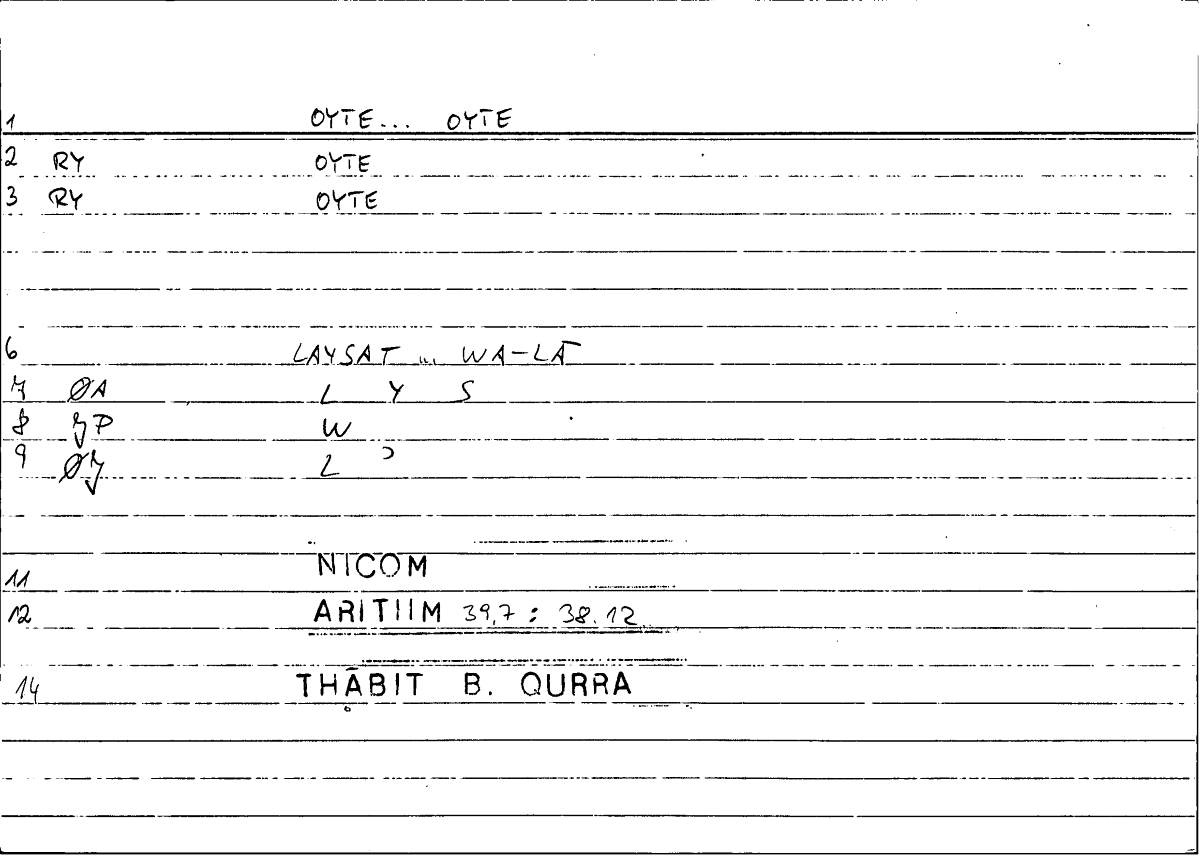 1 OYTE... OYTE
2 RY OYTE
3 RY OYTE
6 LAYSAT ... WA-LĀ
7 ØA L Y S
8 JP W
9 ØJ L ʾ
11 NICOM
12 ARITIIM 39,7 : 38.12
14 THĀBIT B. QURRA